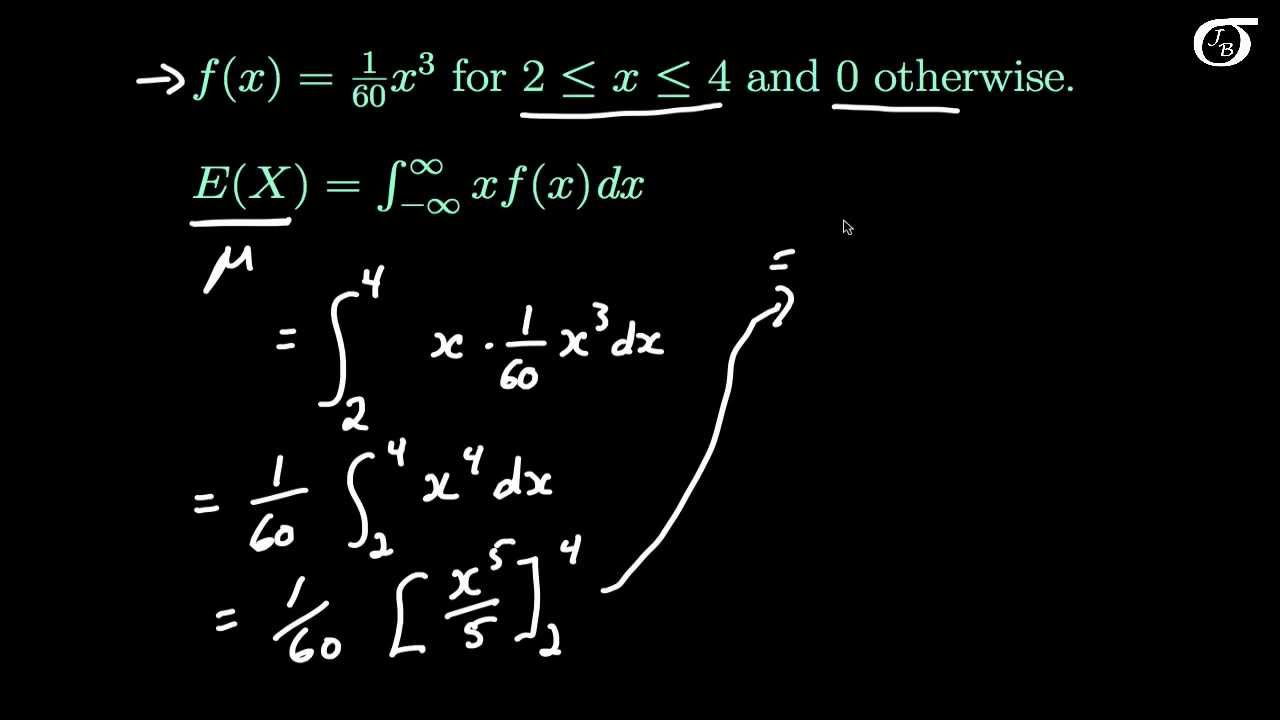 JB
→ f(x) = 1/60 x³ for 2 ≤ x ≤ 4 and 0 otherwise.
E(X) = ∫_{-∞}^{∞} x f(x) dx
μ
= ∫_2^4 x · 1/60 x³ dx
= 1/60 ∫_2^4 x⁴ dx
= 1/60 [x⁵/5]_2^4
=